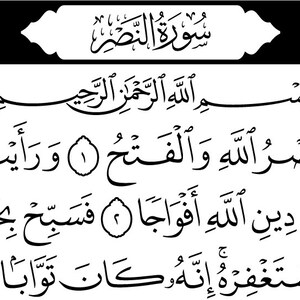 سُورَةُ النَّصْرِ
سْمِ اللَّهِ الرَّحْمَٰنِ الرَّحِيمِ
صْرُ اللَّهِ وَالْفَتْحُ ١ وَرَأَيْتَ
دِينِ اللَّهِ أَفْوَاجًا ٢ فَسَبِّحْ بِحَ
سْتَغْفِرْهُ ۚ إِنَّهُ كَانَ تَوَّابًا